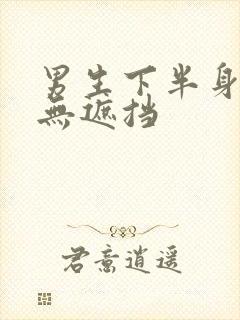 男生下半身
無遮挡
君意逍遥